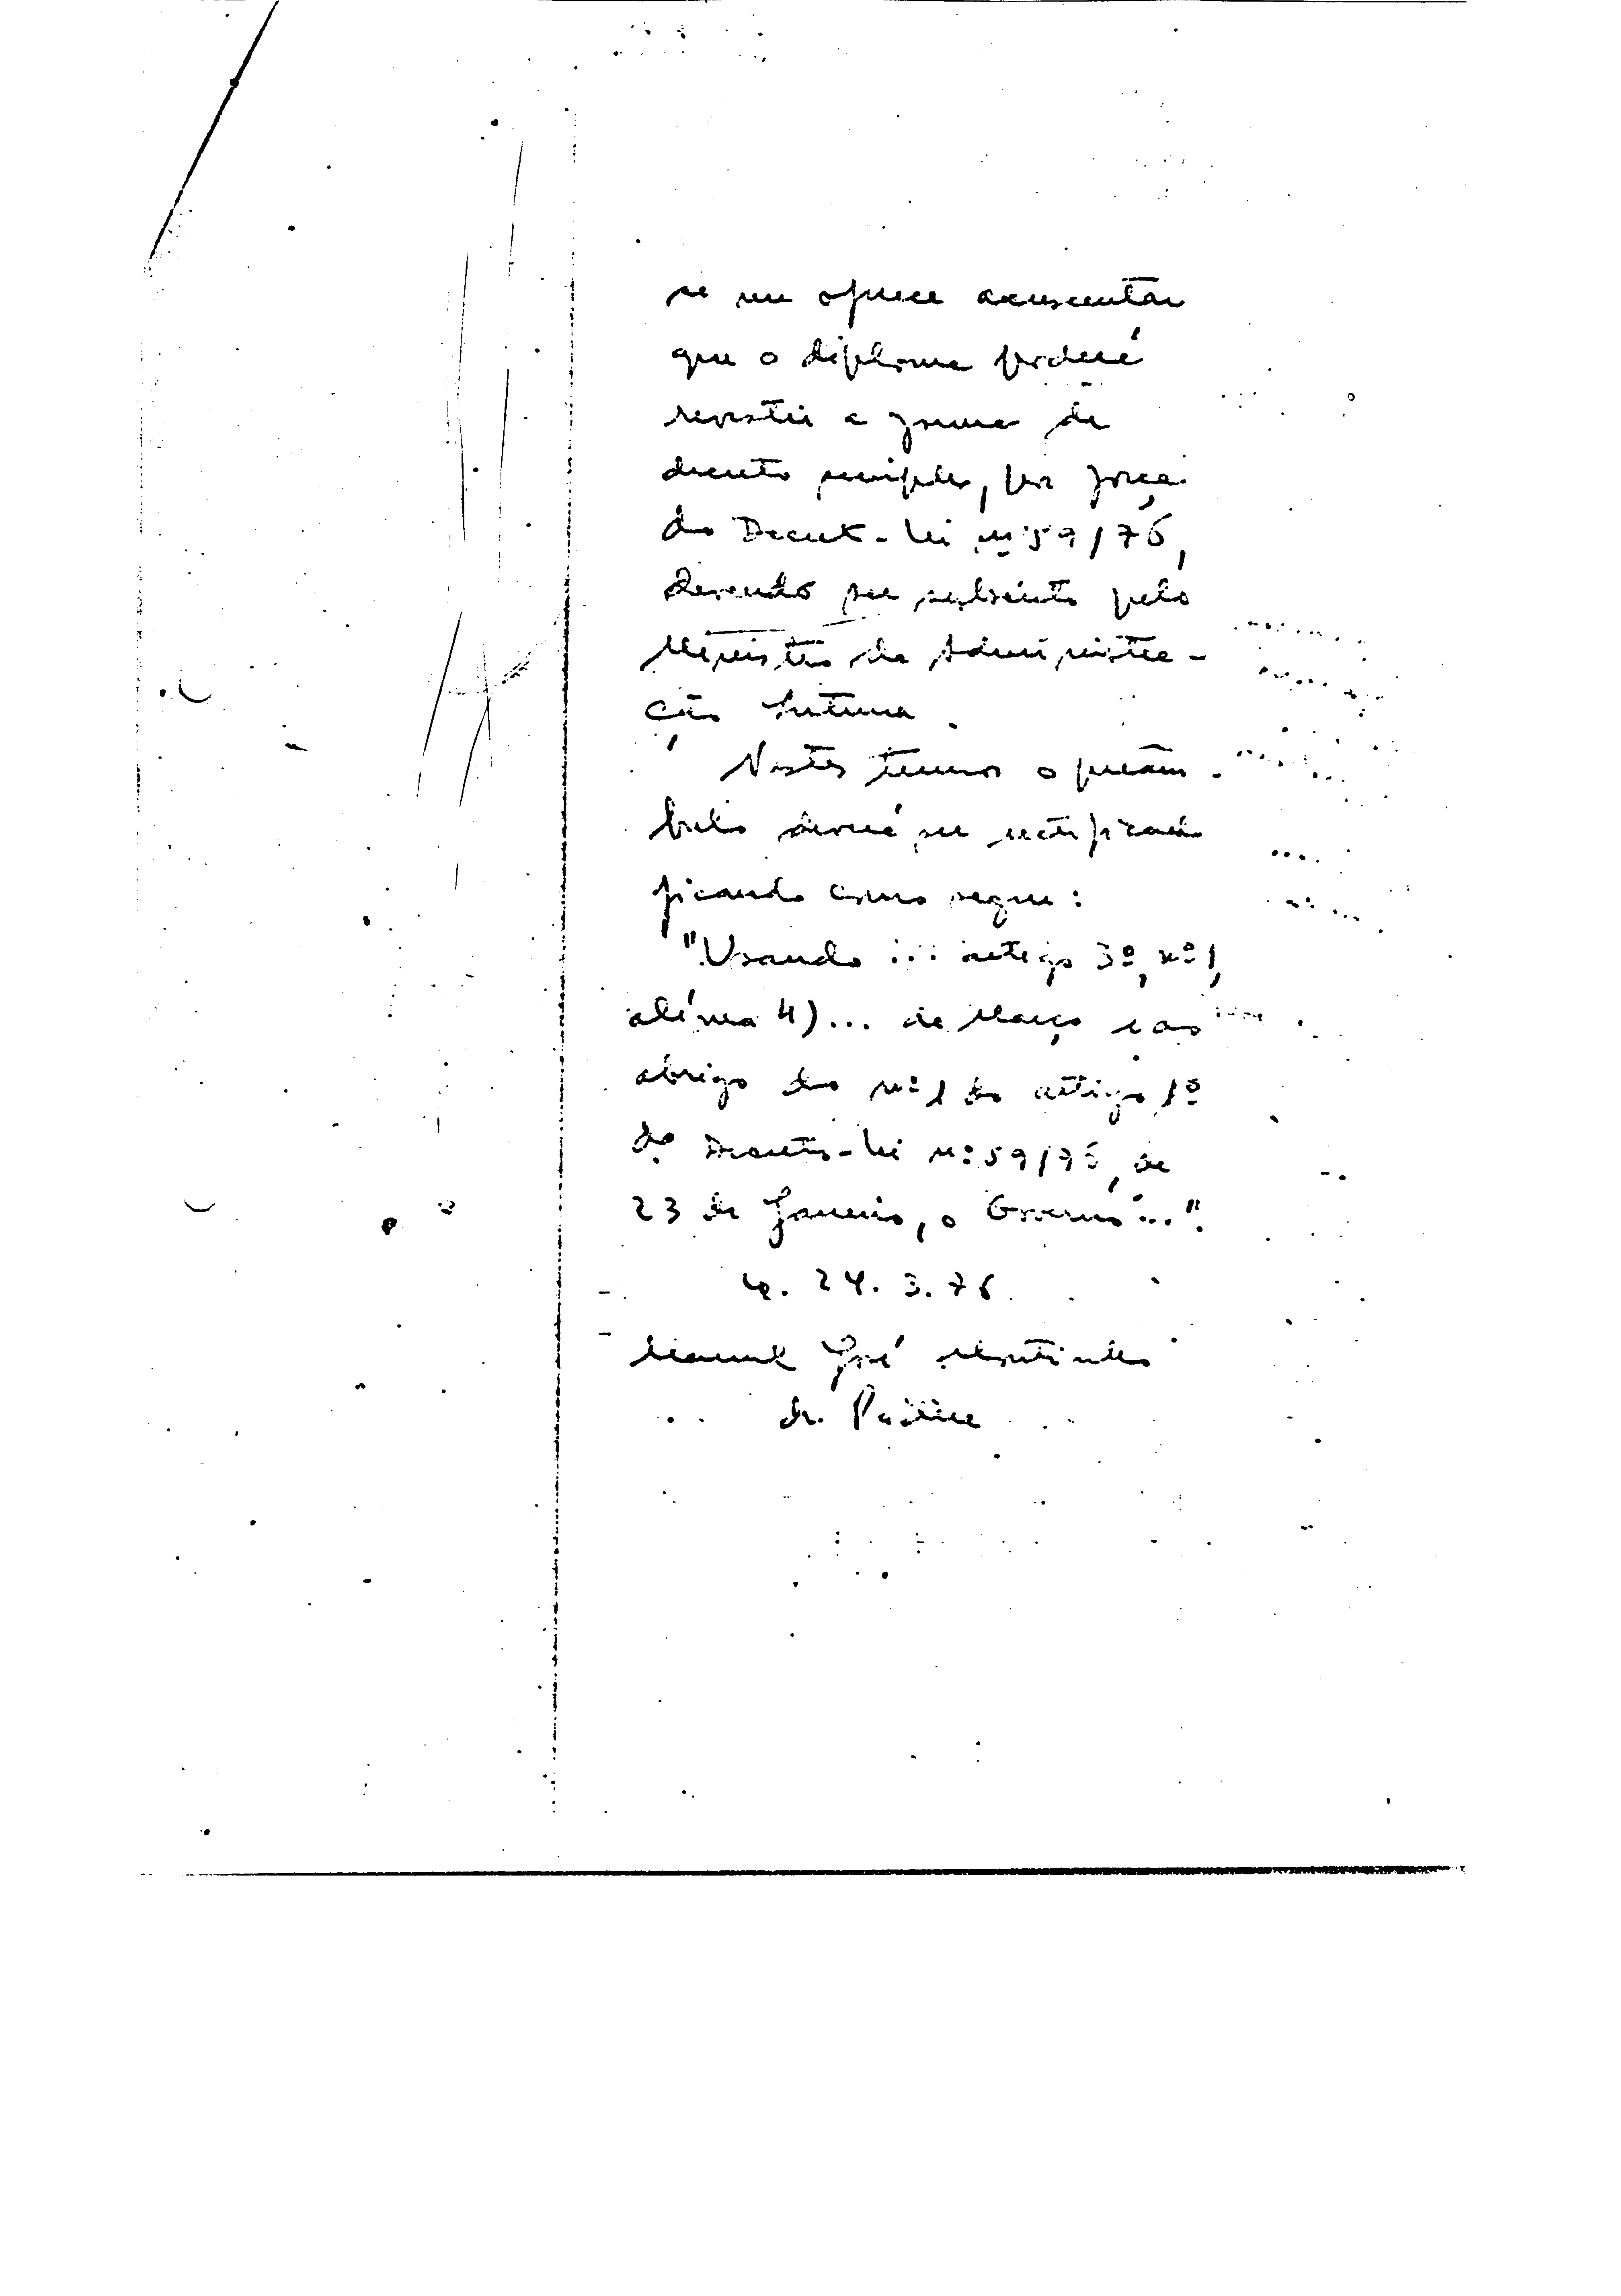 se me oferece acrescentar
que o diploma poderá
revestir a forma de
decreto simples, por força
do Decreto-lei nº 59/76,
devendo ser subscrito pelo
Ministro da Administra-
ção Interna.
Nestes termos o preâm-
bulo deverá ser rectificado
ficando como segue:
"Usando ... artigo 3º, nº 1,
alínea 4)... de Março e ao
abrigo do nº 1 do artigo 1º
do Decreto-lei nº 59/76, de
23 de Janeiro, o Governo ...".
24.3.76
Manuel José